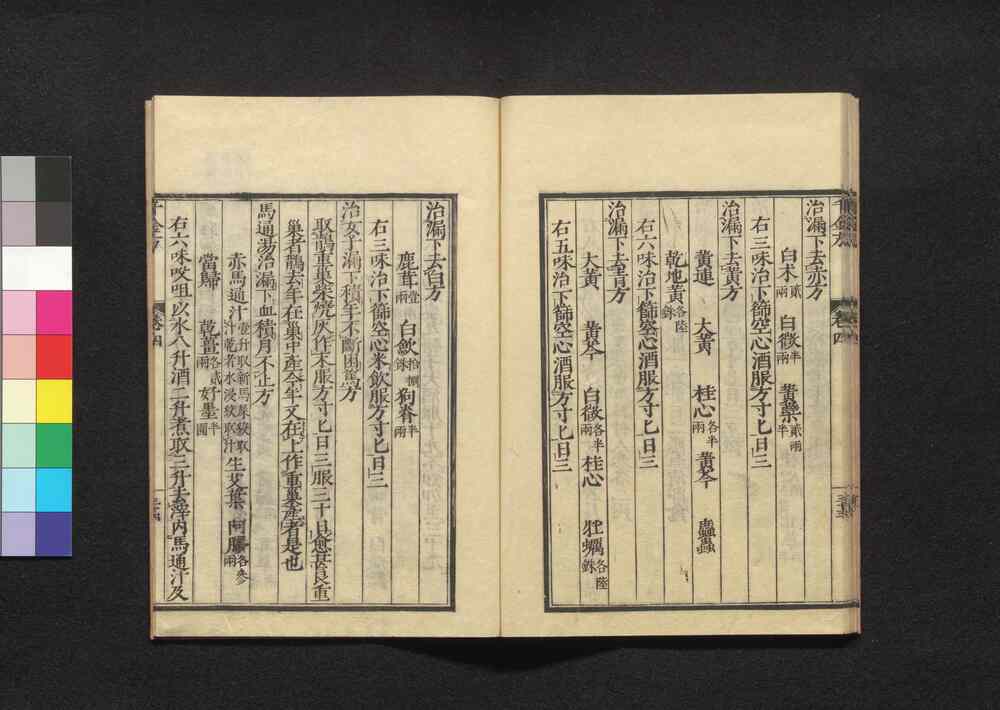 治漏下去赤方
白朮貳兩 白薇半兩 黃蘗貳兩半
右三味治下篩空心酒服方寸匕日三
治漏下去黃方
黃連 大黃 桂心各半兩 黃芩 䗪蟲
乾地黃各陸銖
右六味治下篩空心酒服方寸匕日三
治漏下去青方
大黃 黃芩 白薇各半兩 桂心 牡蠣各陸銖
右五味治下篩空心酒服方寸匕日三
治漏下去白方
鹿茸壹兩 白歛拾捌銖 狗脊半兩
右三味治下篩空心米飲服方寸匕日三
治女子漏下積年不斷困篤方
取鵲重巢柴燒灰作末服方寸匕日三服三十日愈甚良重
巢者鵲去年在巢中產今年又在上作重巢產者是也
馬通湯治漏下血積月不止方
赤馬通汁壹升取新馬屎絞取汁乾者水浸絞取汁 生艾葉 阿膠各參兩
當歸 乾薑各貳兩 好墨半圓
右六味㕮咀以水八升酒二升煮取三升去滓內馬通汁及
卷四
卷四